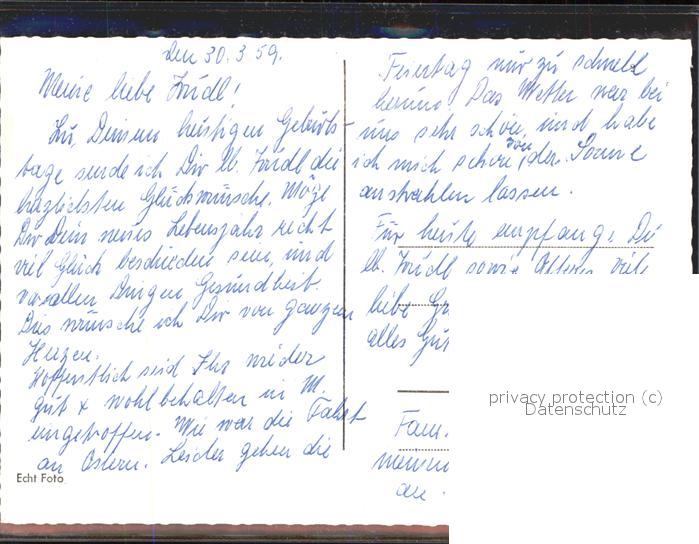 den 30.3.59.
Meine liebe Trudl!
Zu Deinem heutigen Geburts-
tage sende ich Dir lb. Trudl die
herzlichsten Glückwünsche. Möge
Dir Dein neues Lebensjahr recht
viel Glück beschieden sein, und
vor allen Dingen Gesundheit.
Dies wünsche ich Dir von ganzem
Herzen.
Hoffentlich seid Ihr wieder
gut + wohlbehalten in M.
eingetroffen. Wie war die Fahrt
an Ostern. Leider gehen die
Echt Foto
Feiertag nur zu schnell
herum. Das Wetter war bei
uns sehr schön, und habe
ich mich schon von der Sonne
anstrahlen lassen.
Für heute empfange Du
lb. Trudl sowie viele
liebe
alles
Fam.
an.
privacy protection (c)
Datenschutz